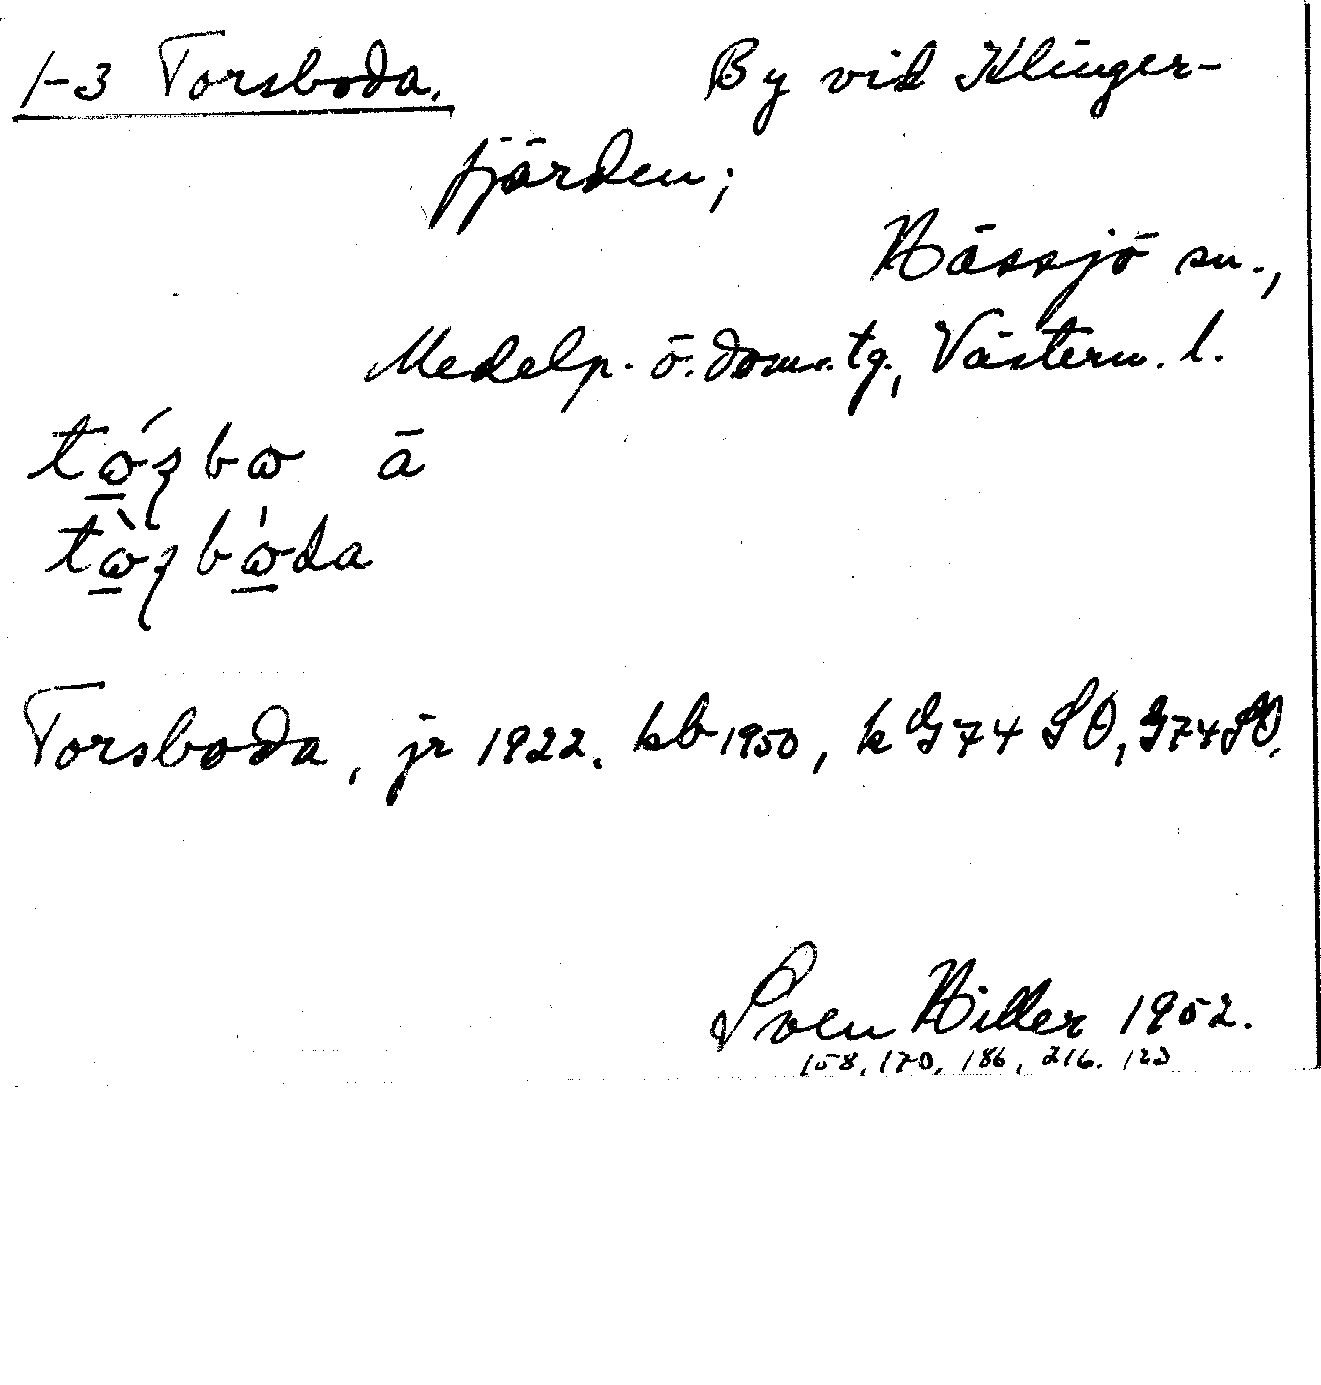 1-3 Torsboda. By vid Klinger-
fjärden;
Hässjö sn.,
Medelp. ö. doms. tg., Västern. l.
tώ̲ʂbω ā
tὼ̲ʂbω̲̍da
Torsboda, jr 1922. kb 1950, k G74 SO, G74 SO.
Sven Hiller 1952.
158, 170, 186, 216. 123